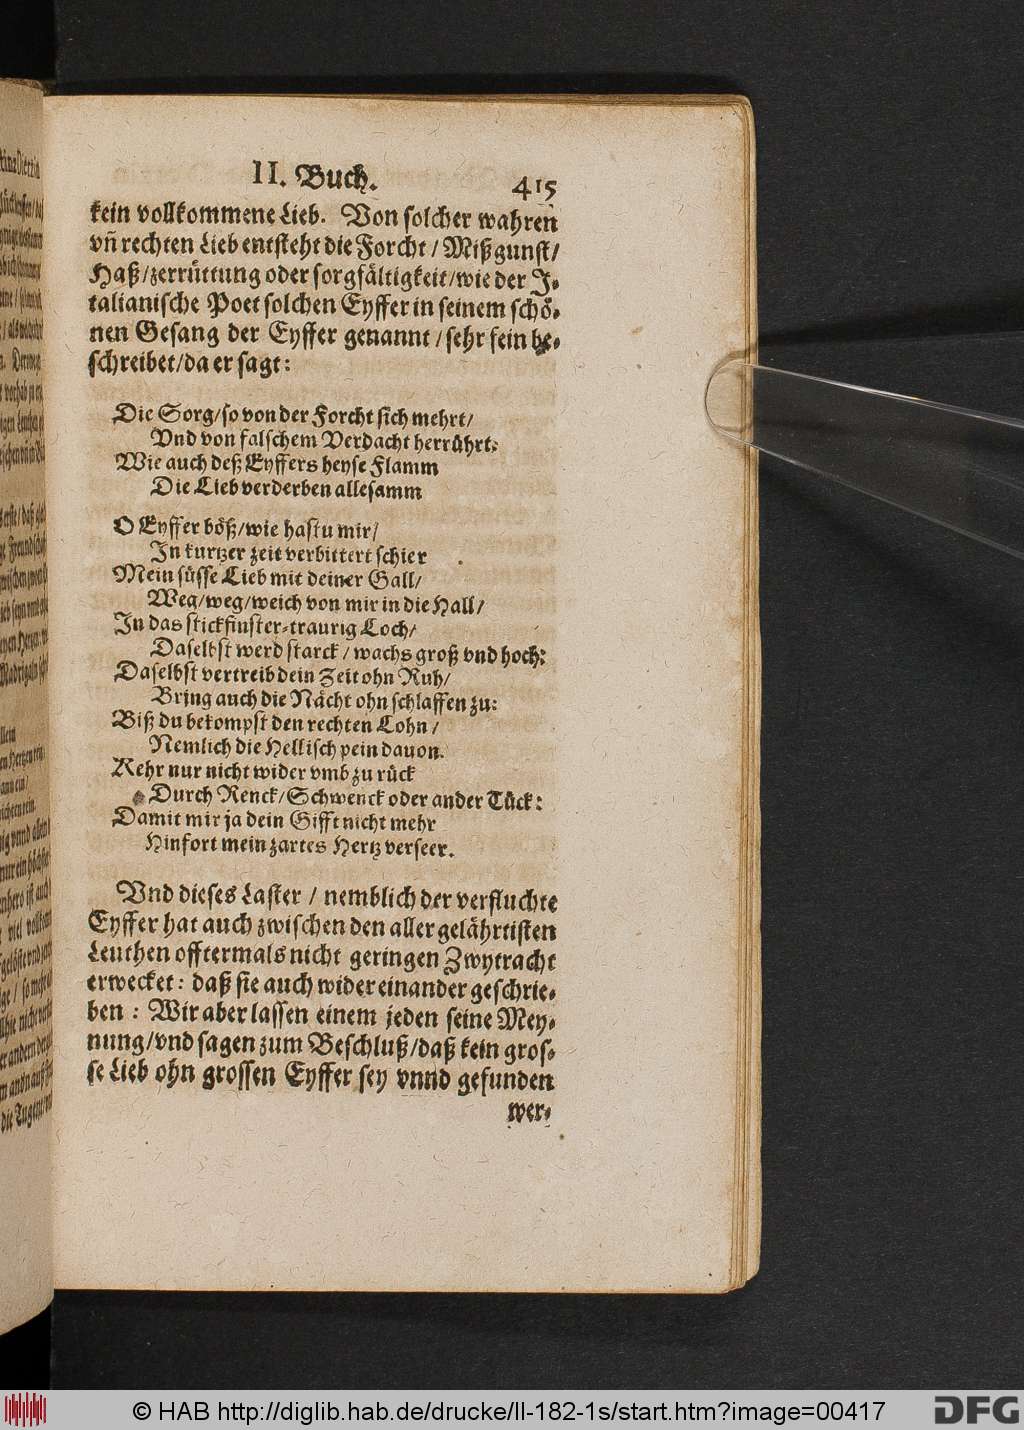 II. Buch.
415
kein vollkommene Lieb. Von solcher wahren
vñ rechten Lieb entsteht die Forcht / Mißgunst /
Haß / zerrüttung oder sorgfältigkeit / wie der J-
talianische Poet solchen Eyffer in seinem schö-
nen Gesang der Eyffer genannt / sehr fein be-
schreibet / da er sagt:
Die Sorg / so von der Forcht sich mehrt /
Vnd von falschem Verdacht herrührt.
Wie auch deß Eyffers heyse Flamm
Die Lieb verderben allesamm
O Eyffer böß / wie hastu mir /
In kurtzer zeit verbittert schier
Mein süsse Lieb mit deiner Gall /
Weg / weg / weich von mir in die Hall /
In das stickfinster-traurig Loch /
Daselbst werd starck / wachs groß vnd hoch:
Daselbst vertreib dein Zeit ohn Ruh /
Bring auch die Nächt ohn schlaffen zu:
Biß du bekompst den rechten Lohn /
Nemlich die Hellisch pein dauon.
Kehr nur nicht wider vmb zu rück
Durch Renck / Schwenck oder ander Tück:
Damit mir ja dein Gifft nicht mehr
Hinfort mein zartes Hertz verseer.
Vnd dieses Laster / nemblich der verfluchte
Eyffer hat auch zwischen den aller gelährtisten
Leuthen offtermals nicht geringen Zwytracht
erwecket: daß sie auch wider einander geschrie-
ben: Wir aber lassen einem jeden seine Mey-
nung / vnd sagen zum Beschluß / daß kein gros-
se Lieb ohn grossen Eyffer sey vnnd gefunden
wer-
© HAB http://diglib.hab.de/drucke/ll-182-1s/start.htm?image=00417
DFG